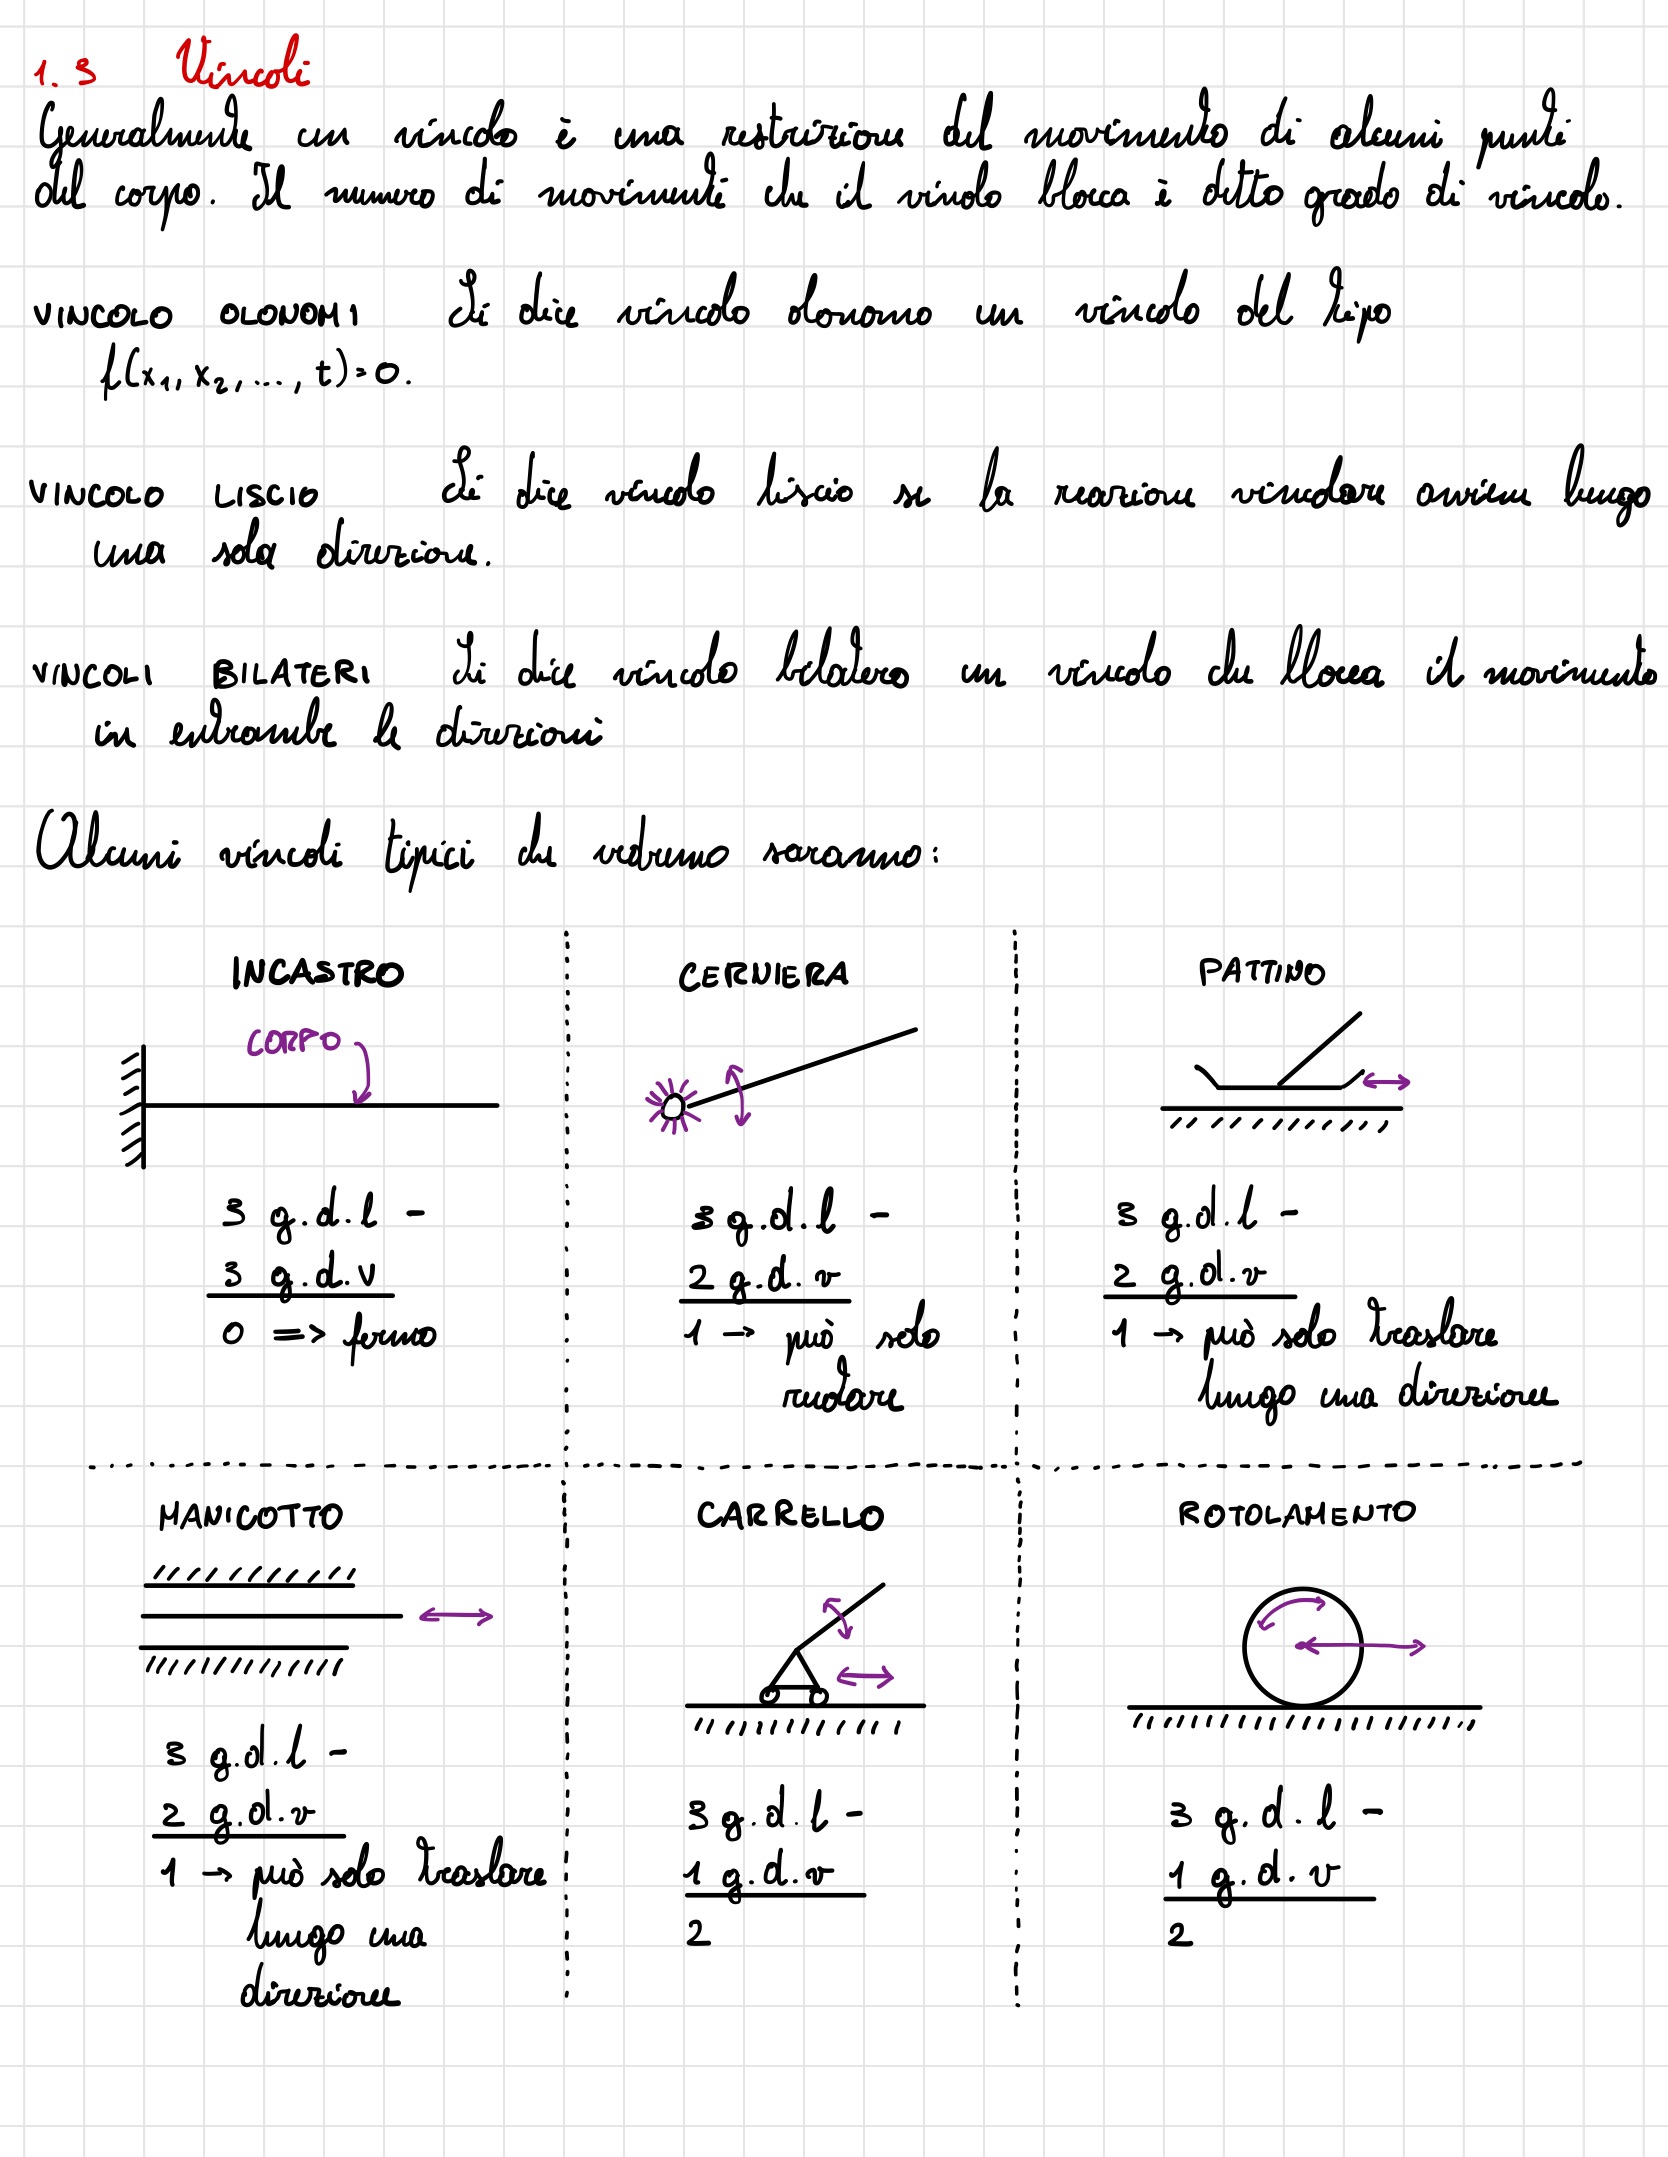 1.3 Vincoli
Generalmente un vincolo è una restrizione del movimento di alcuni punti
del corpo. Il numero di movimenti che il vincolo blocca è detto grado di vincolo.
VINCOLO OLONOMI Si dice vincolo olonomo un vincolo del tipo
f(x₁, x₂, ..., t)=0.
VINCOLO LISCIO Si dice vincolo liscio se la reazione vincolare avviene lungo
una sola direzione.
VINCOLI BILATERI Si dice vincolo bilatero un vincolo che blocca il movimento
in entrambe le direzioni
Alcuni vincoli tipici che vedremo saranno:
INCASTRO
CORPO
3 g.d.l -
3 g.d.v
0 => fermo
CERNIERA
3 g.d.l -
2 g.d.v
1 → può solo
ruotare
PATTINO
3 g.d.l -
2 g.d.v
1 → può solo traslare
lungo una direzione
MANICOTTO
3 g.d.l -
2 g.d.v
1 → può solo traslare
lungo una
direzione
CARRELLO
3 g.d.l -
1 g.d.v
2
ROTOLAMENTO
3 g.d.l -
1 g.d.v
2